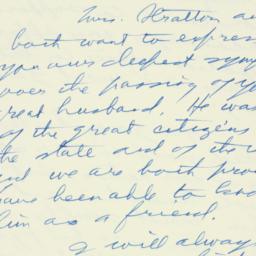 Mrs. Stratton an
both want to express
you our deepest sym
over the passing of y
great husband. He was
of the great citizens
the state and of its
and we are both pro
have been able to kno
him as a friend.
I will always